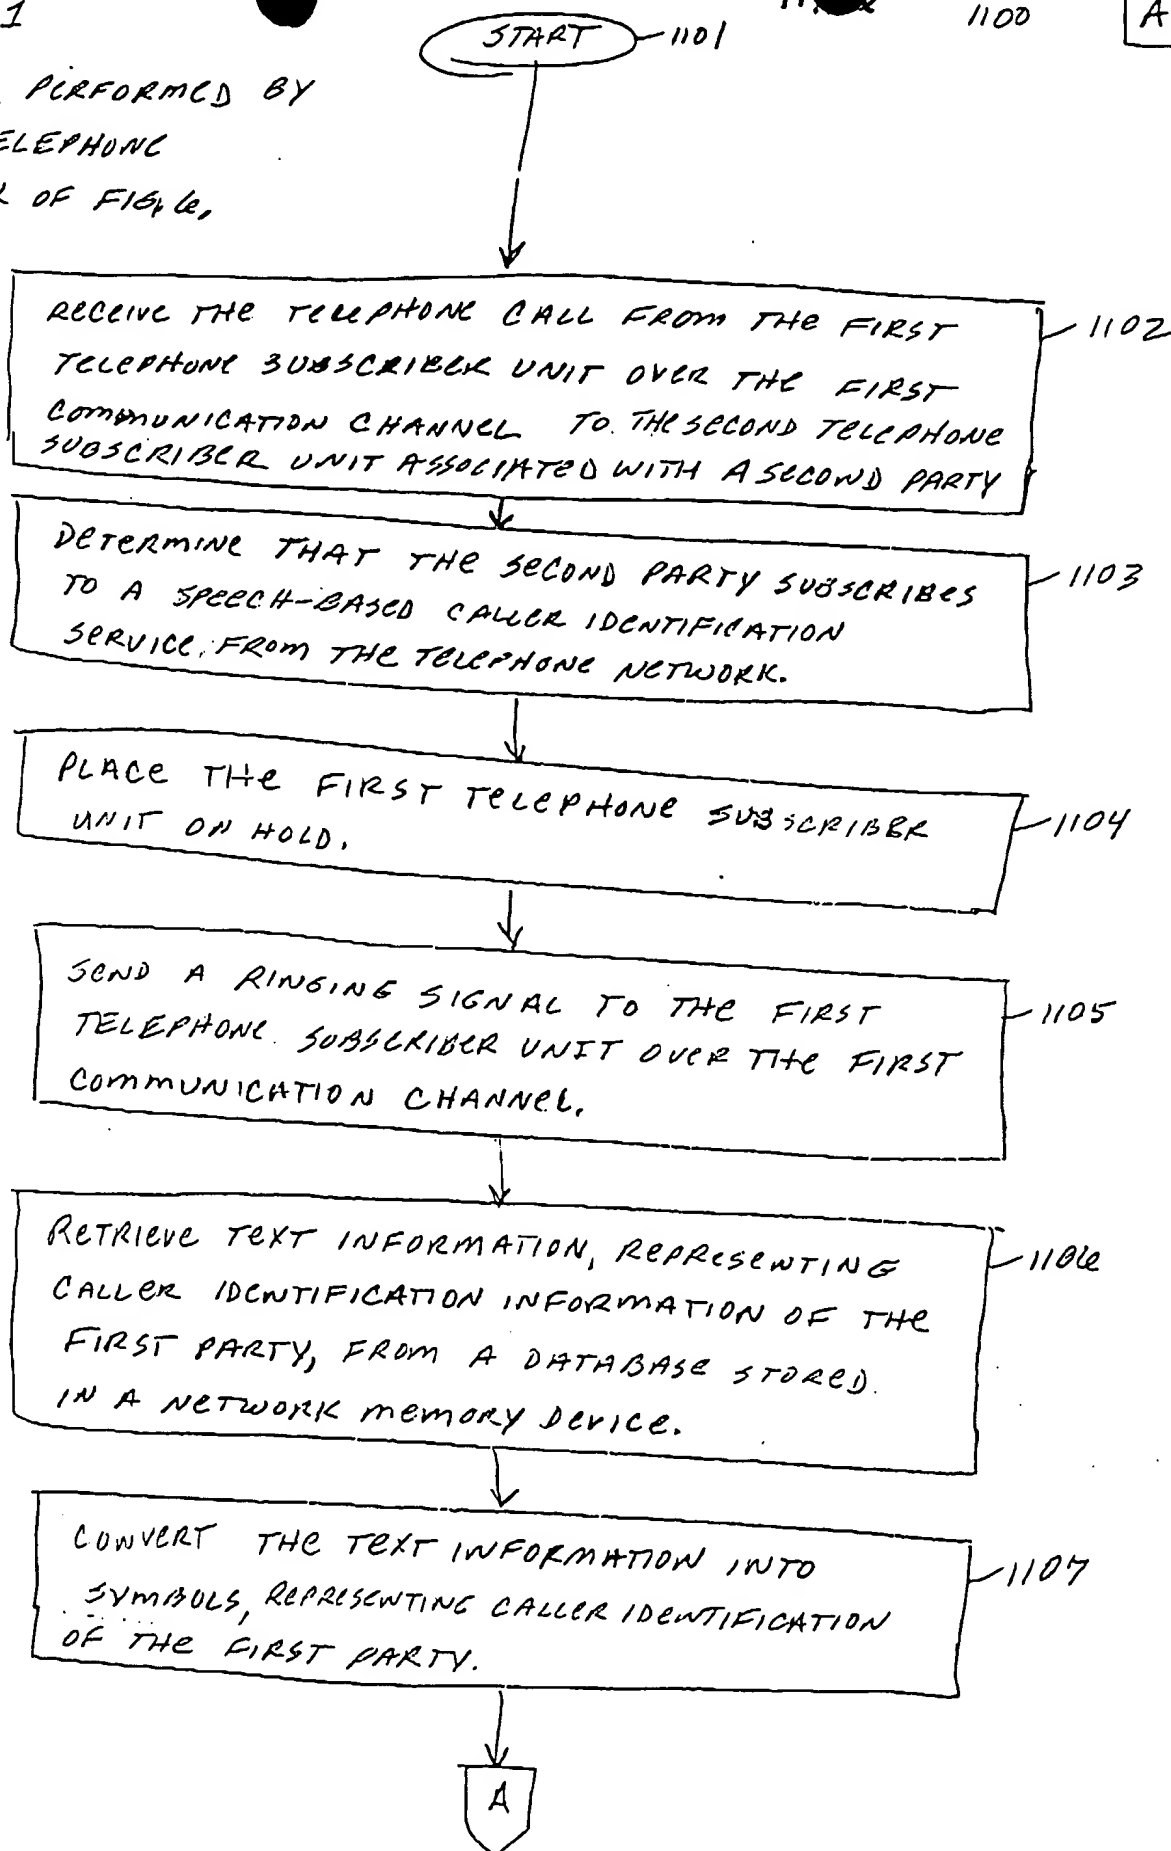 1
1100
A
START
1101
PERFORMED BY
ELEPHONE
OF FIG. 6.
RECEIVE THE TELEPHONE CALL FROM THE FIRST
TELEPHONE SUBSCRIBER UNIT OVER THE FIRST
COMMUNICATION CHANNEL TO THE SECOND TELEPHONE
SUBSCRIBER UNIT ASSOCIATED WITH A SECOND PARTY
1102
DETERMINE THAT THE SECOND PARTY SUBSCRIBES
TO A SPEECH-BASED CALLER IDENTIFICATION
SERVICE FROM THE TELEPHONE NETWORK.
1103
PLACE THE FIRST TELEPHONE SUBSCRIBER
UNIT ON HOLD.
1104
SEND A RINGING SIGNAL TO THE FIRST
TELEPHONE SUBSCRIBER UNIT OVER THE FIRST
COMMUNICATION CHANNEL.
1105
RETRIEVE TEXT INFORMATION, REPRESENTING
CALLER IDENTIFICATION INFORMATION OF THE
FIRST PARTY, FROM A DATABASE STORED
IN A NETWORK MEMORY DEVICE.
1106
CONVERT THE TEXT INFORMATION INTO
SYMBOLS, REPRESENTING CALLER IDENTIFICATION
OF THE FIRST PARTY.
1107
A